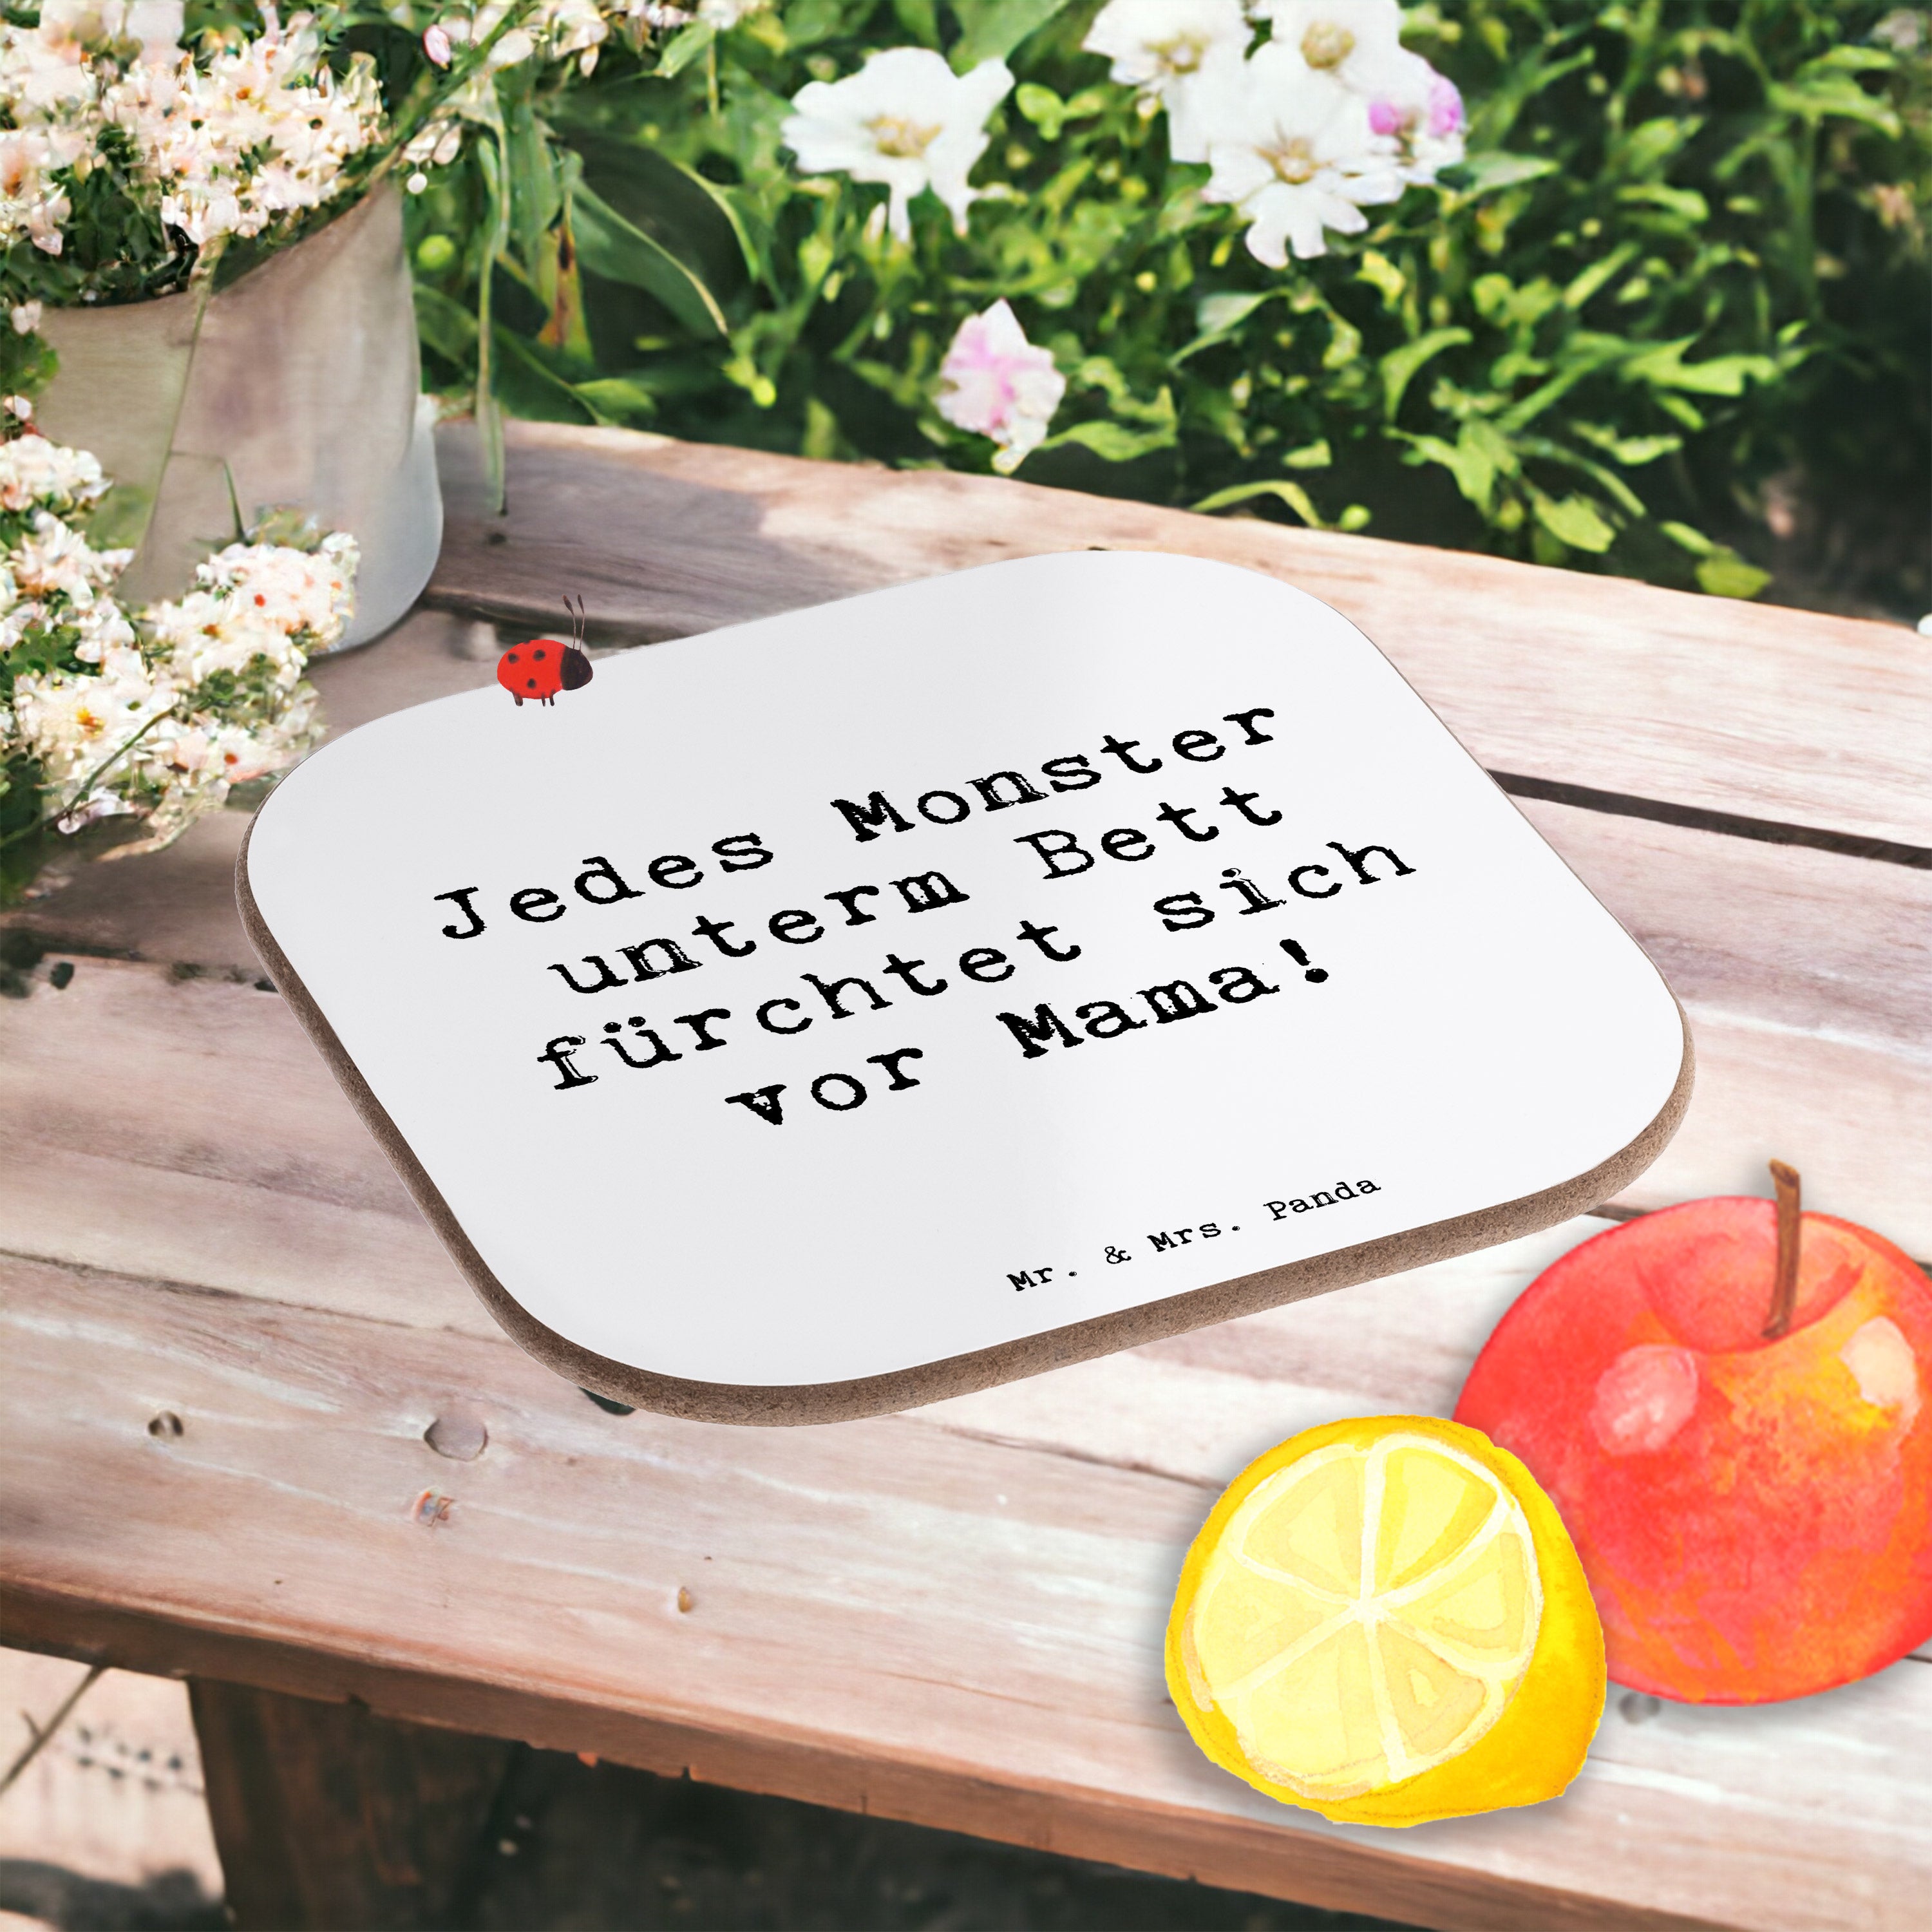 Jedes Monster
unterm Bett
fürchtet sich
vor Mama!
Mr. & Mrs. Panda